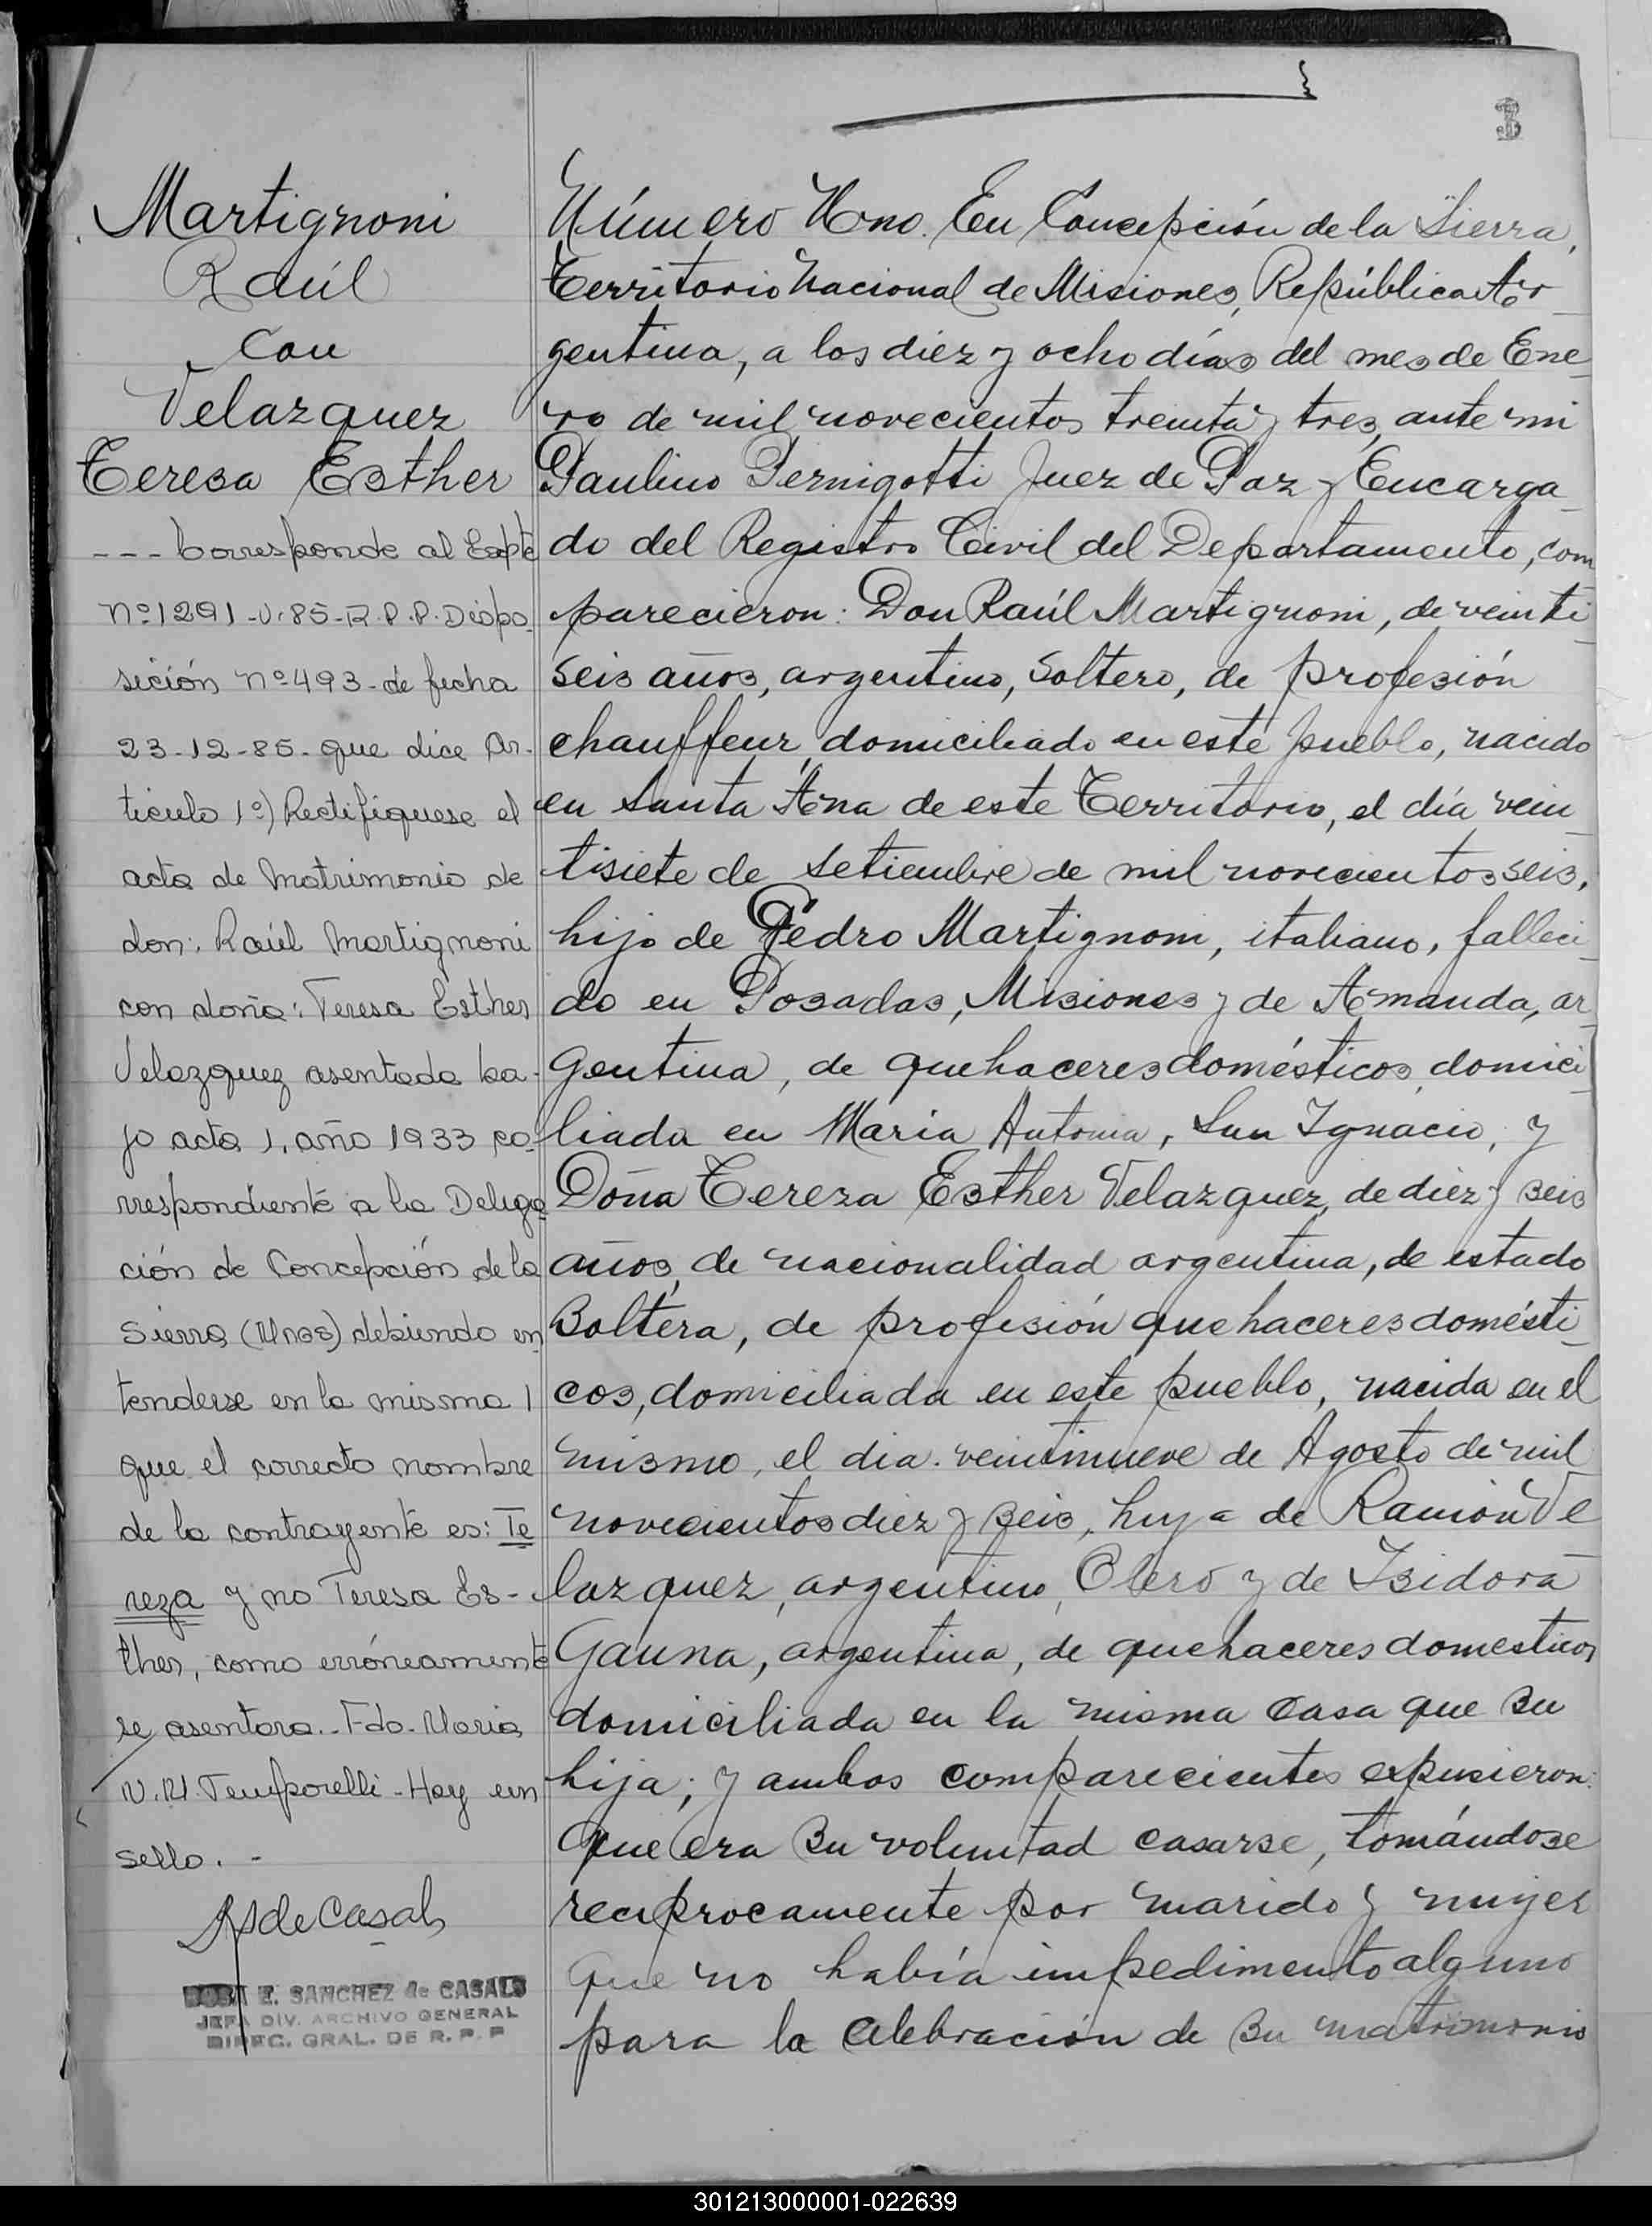 3
Martignoni
Raúl
Con
Velazquez
Teresa Esther
--- Corresponde al Expte
Nº1291-V-85-R.P.P. Dispo-
sición Nº493- de fecha
23-12-85- que dice Ar-
tículo 1º) Rectifíquese el
acta de Matrimonio de
don: Raúl Martignoni
con doña: Teresa Esther
Velazquez asentada ba-
jo acta 1, año 1933 co-
rrespondiente a la Delega
ción de Concepción de la
Sierra (Mnes) debiendo en
tenderse en la misma
que el correcto nombre
de la contrayente es: Te
reza y no Teresa Es-
ther, como erróneamente
se asentara.- Fdo. María
V.M. Temporelli - Hay un
sello. -
E. SANCHEZ de CASALS
JEFA DIV. ARCHIVO GENERAL
DIREC. GRAL. DE R. P. P
Número Uno. En Concepción de la Sierra,
Territorio Nacional de Misiones, República Ar
gentina, a los diez y ocho días del mes de Ene
ro de mil novecientos treinta y tres, ante mi
Paulino Pernigotti Juez de Paz y Encarga
do del Registro Civil del Departamento, com
parecieron: Don Raúl Martignoni, de veinti
seis años, argentino, soltero, de profesión
chauffeur, domiciliado en este pueblo, nacido
en Santa Ana de este Territorio, el día vein
tisiete de setiembre de mil novecientos seis,
hijo de Pedro Martignoni, italiano, falleci
do en Posadas, Misiones y de Amanda, ar
gentina, de quehaceres domésticos, domici
liada en Maria Antonia, San Ignacio, y
Doña Tereza Esther Velazquez, de diez y seis
años, de nacionalidad argentina, de estado
Soltera, de profesión quehaceres domésti
cos, domiciliada en este pueblo, nacida en el
mismo, el dia veintinueve de Agosto de mil
novecientos diez y seis, hija de Ramón Ve
lazquez, argentino, Olero y de Isidora
Gauna, argentina, de quehaceres domesticos
domiciliada en la misma casa que su
hija; y ambos comparecientes expusieron:
Que era su voluntad casarse, tomándose
reciprocamente por marido y mujer
que no había impedimento alguno
para la celebración de su matrimonio
301213000001-022639